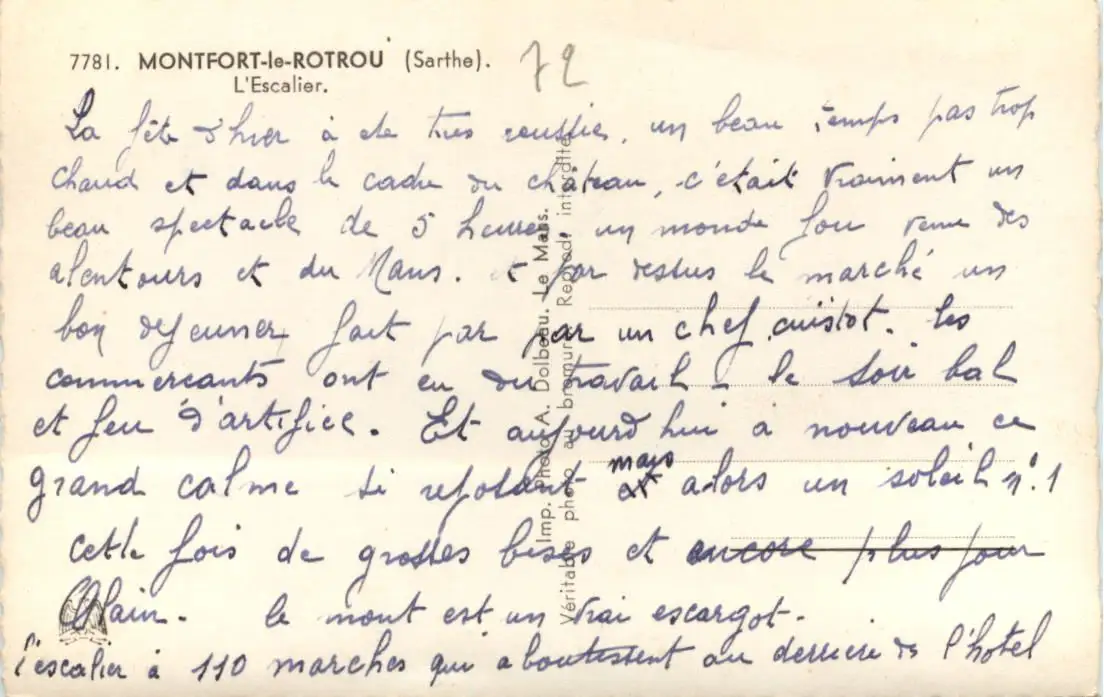 7781. MONTFORT-le-ROTROU (Sarthe).
72
L'Escalier.
La fête d'hier à été très réussie, un beau temps pas trop
chaud et dans le cadre du château, c'était vraiment un
beau spectacle de 5 heures un monde fou venu des
alentours et du Mans. et par dessus le marché un
bon dejeuner fait par par un chef cuistot. les
commercants ont eu du travail - le soir bal
et feu d'artifice. Et aujourd'hui à nouveau ce
grand calme si reposant mais alors un soleil n° 1
cette fois de grosses bises et encore plus pour
Alain. le mont est un vrai escargot.
l'escalier à 110 marches qui aboutissent au derriere de l'hotel
Imp. Photo A. Dolbeau. Le Mans.
Véritable photo au bromure. Reprod. interdite